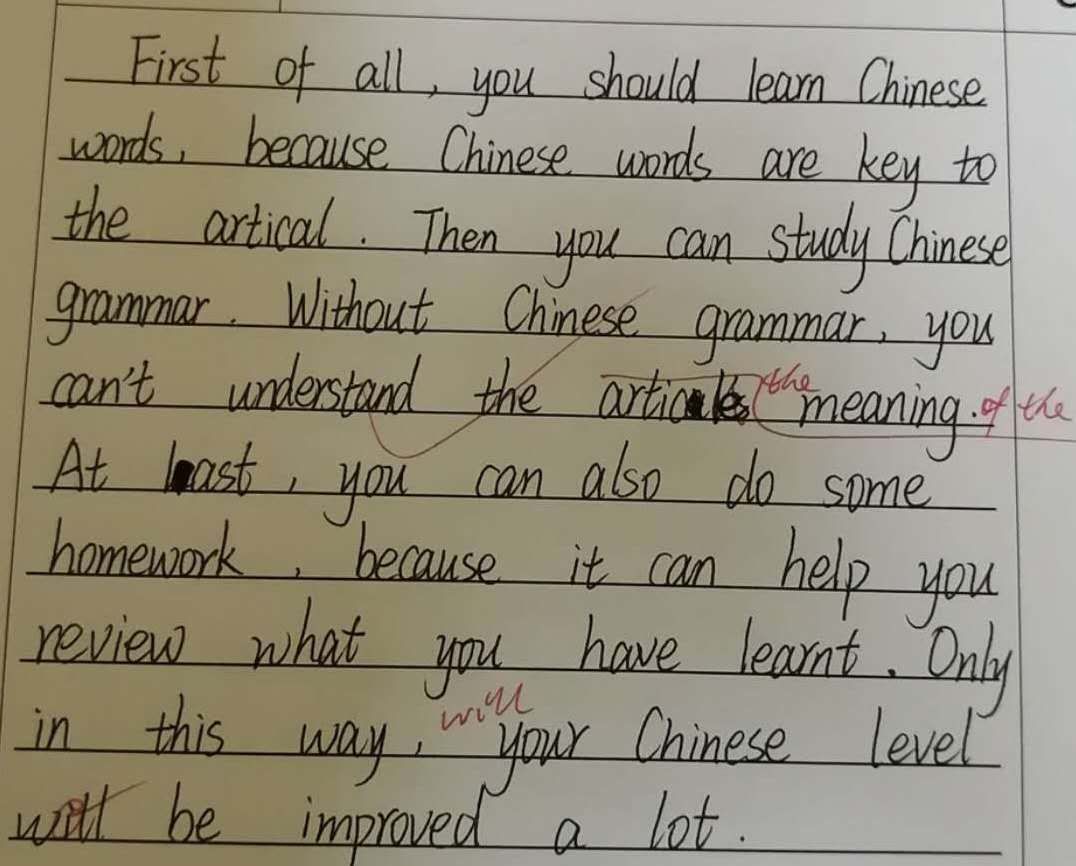 First of all, you should learn Chinese
words, because Chinese words are key to
the artical. Then you can study Chinese
grammar. Without Chinese grammar, you
can't understand the the meaning. of the
At last, you can also do some
homework, because it can help you
review what you have learnt. Only
in this way, will your Chinese level
will be improved a lot.